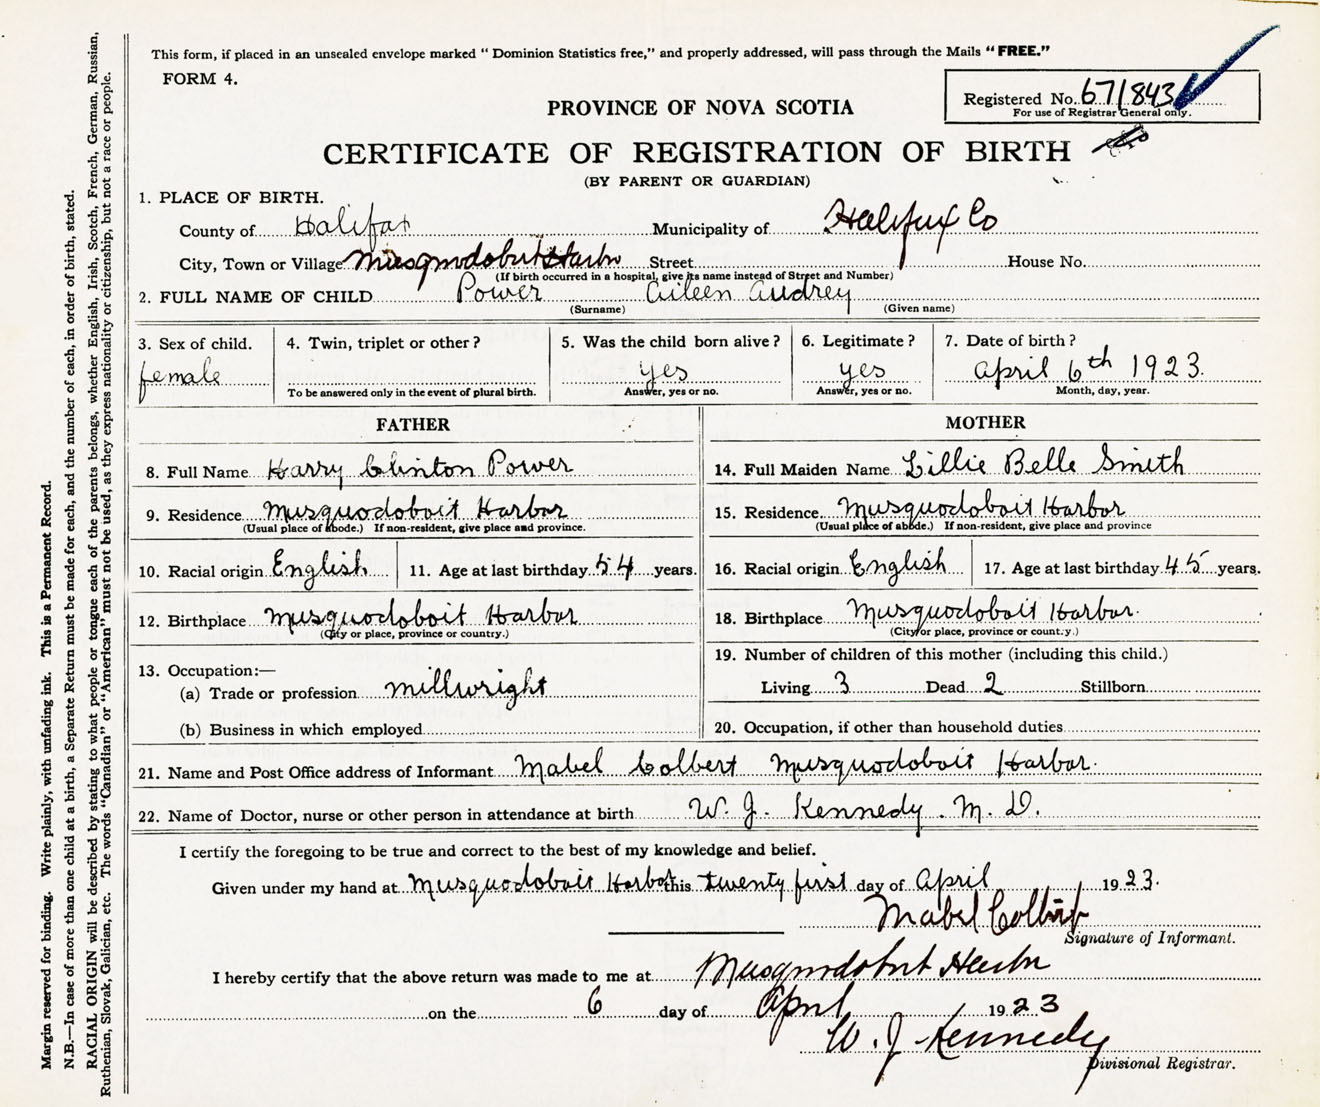 This form, if placed in an unsealed envelope marked “ Dominion Statistics free,” and properly addressed, will pass through the Mails “ FREE.”
FORM 4.
Registered No. 671843
For use of Registrar General only.
PROVINCE OF NOVA SCOTIA
CERTIFICATE OF REGISTRATION OF BIRTH
(BY PARENT OR GUARDIAN)
1. PLACE OF BIRTH.
County of Halifax Municipality of Halifax Co
City, Town or Village Musquodoboit Harbor Street House No.
(If birth occurred in a hospital, give its name instead of Street and Number)
2. FULL NAME OF CHILD Power Aileen Audrey
(Surname) (Given name)
3. Sex of child. 4. Twin, triplet or other? 5. Was the child born alive? 6. Legitimate? 7. Date of birth?
female yes yes April 6th 1923.
To be answered only in the event of plural birth. Answer, yes or no. Answer, yes or no. Month, day, year.
FATHER
8. Full Name Harry Clinton Power
9. Residence Musquodoboit Harbor
(Usual place of abode.) If non-resident, give place and province.
10. Racial origin English 11. Age at last birthday 54 years.
12. Birthplace Musquodoboit Harbor
(City or place, province or country.)
13. Occupation:—
(a) Trade or profession millwright
(b) Business in which employed
MOTHER
14. Full Maiden Name Lillie Belle Smith
15. Residence. Musquodoboit Harbor
(Usual place of abode.) If non-resident, give place and province
16. Racial origin English 17. Age at last birthday 45 years.
18. Birthplace Musquodoboit Harbor.
(City or place, province or country.)
19. Number of children of this mother (including this child.)
Living 3 Dead 2 Stillborn
20. Occupation, if other than household duties
21. Name and Post Office address of Informant Mabel Colbert Musquodoboit Harbor.
22. Name of Doctor, nurse or other person in attendance at birth W. J. Kennedy. M. D.
I certify the foregoing to be true and correct to the best of my knowledge and belief.
Given under my hand at Musquodoboit Harbor this twenty first day of April 1923.
Mabel Colbert
Signature of Informant.
I hereby certify that the above return was made to me at Musquodoboit Harbor
on the 6 day of April 1923
W. J. Kennedy
Divisional Registrar.
Margin reserved for binding. Write plainly, with unfading ink. This is a Permanent Record.
N.B.—In case of more than one child at a birth, a Separate Return must be made for each, and the number of each, in order of birth, stated.
RACIAL ORIGIN will be described by stating to what people or tongue each of the parents belongs, whether English, Irish, Scotch, French, German, Russian,
Ruthenian, Slovak, Galician, etc. The words “Canadian” or “American” must not be used, as they express nationality or citizenship, but not a race or people.